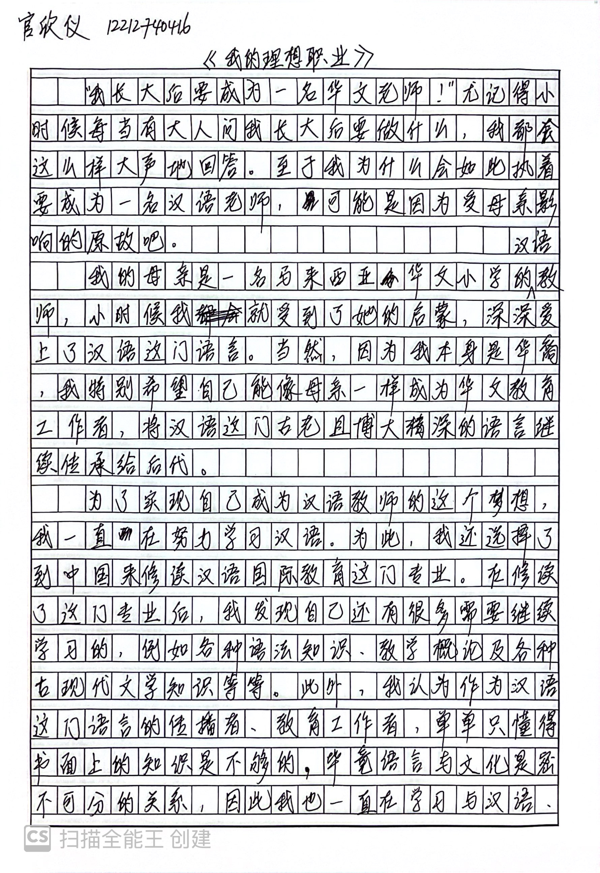 官欣仪 12212740416
《我的理想职业》
"我长大后要成为一名华文老师！"尤记得小
时候每当有大人问我长大后要做什么，我都会
这么样大声地回答。至于我为什么会如此执着
要成为一名汉语老师，可能是因为受母亲影
响的原故吧。
汉语
我的母亲是一名马来西亚华文小学的教
师，小时候我就受到了她的启蒙，深深爱
上了汉语这门语言。当然，因为我本身是华裔
，我特别希望自己能像母亲一样成为华文教育
工作者，将汉语这门古老且博大精深的语言继
续传承给后代。
为了实现自己成为汉语教师的这个梦想，
我一直在努力学习汉语。为此，我还选择了
到中国来修读汉语国际教育这门专业。在修读
了这门专业后，我发现自己还有很多需要继续
学习的，例如各种语法知识、教学概论及各种
古现代文学知识等等。此外，我认为作为汉语
这门语言的传播者、教育工作者，单单只懂得
书面上的知识是不够的，毕竟语言与文化是密
不可分的关系，因此我也一直在学习与汉语、
CS 扫描全能王 创建